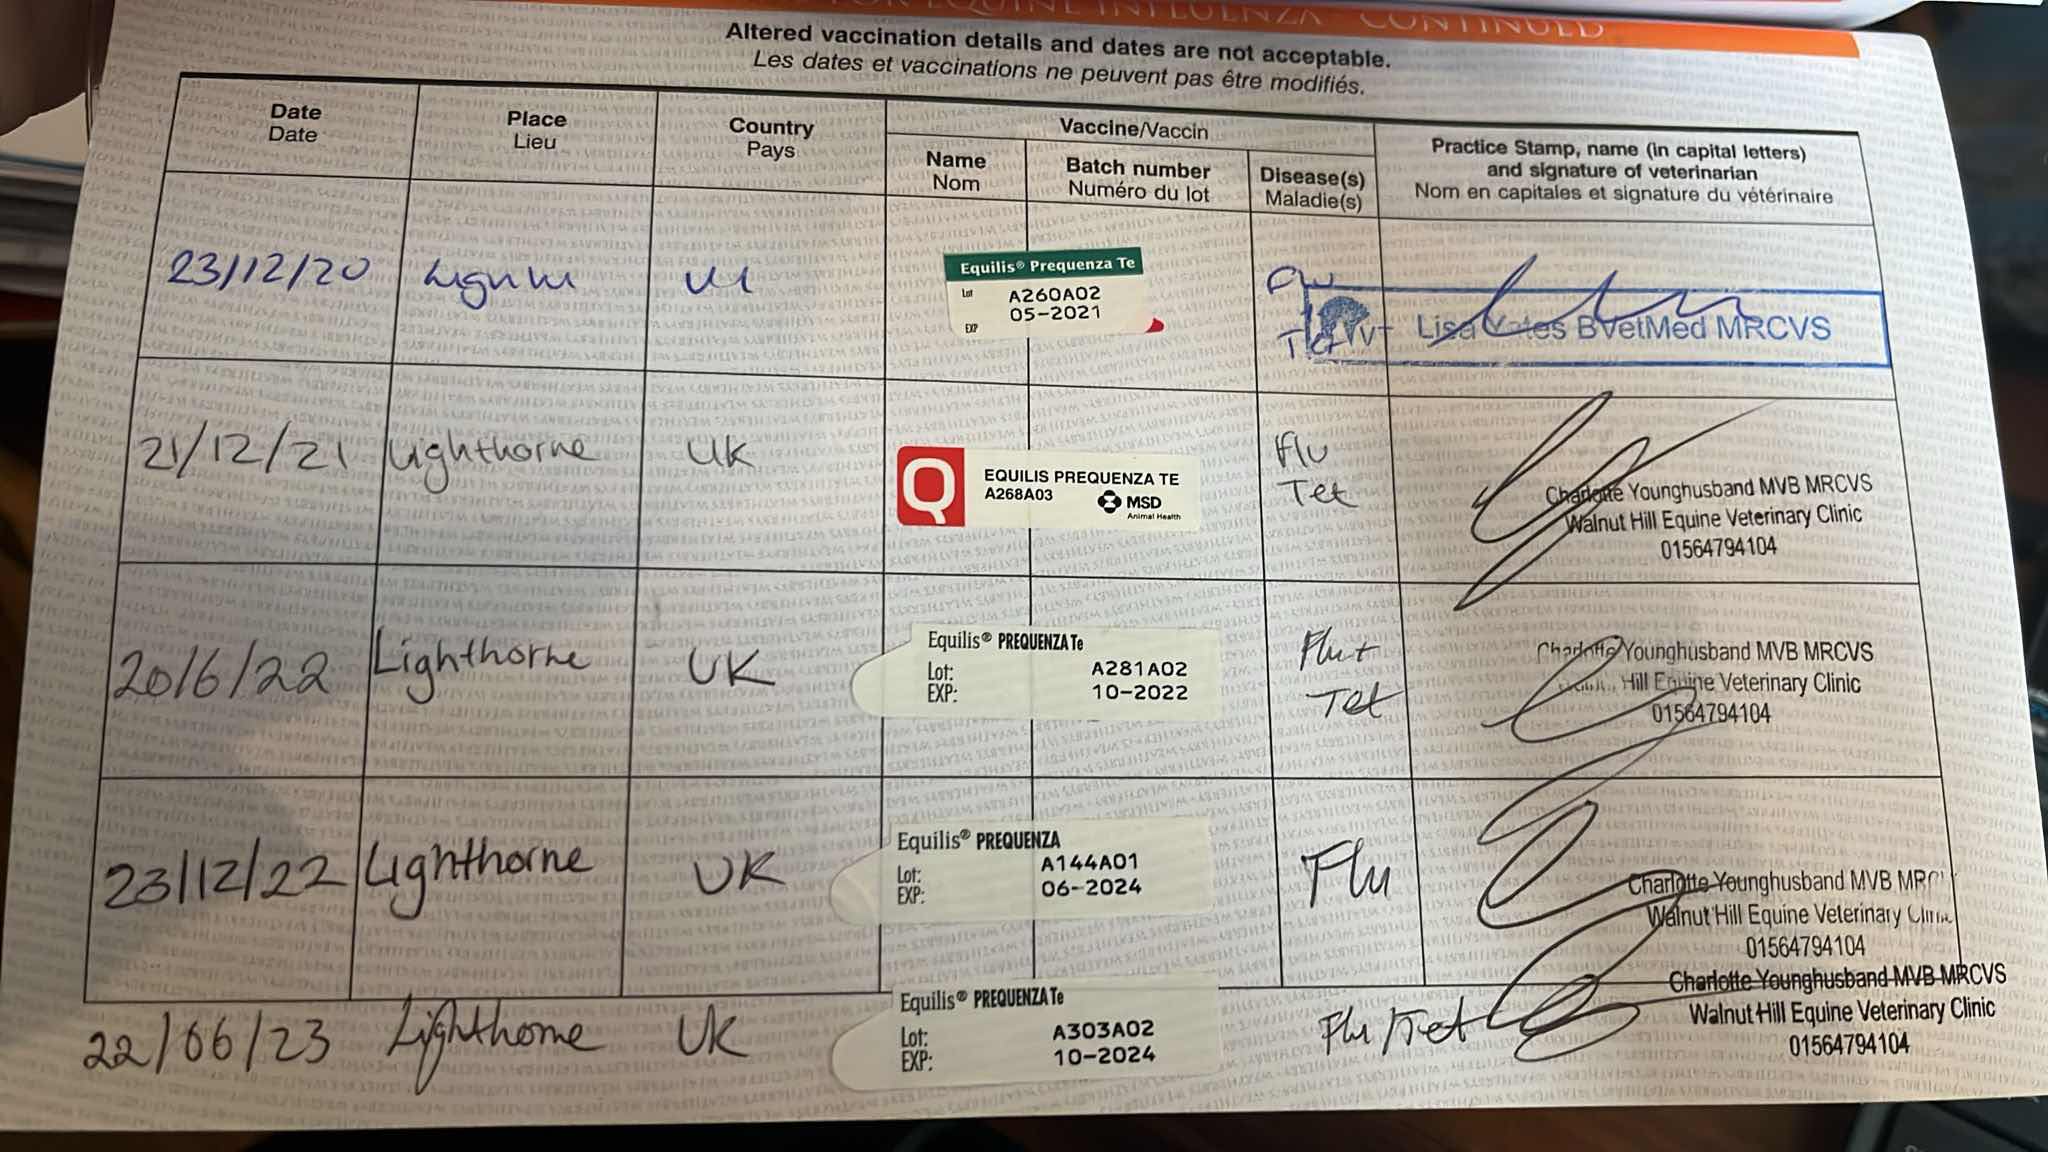 FOR EQUINE INFLUENZA CONTINUED
Altered vaccination details and dates are not acceptable.
Les dates et vaccinations ne peuvent pas être modifiés.
Date
Date
Place
Lieu
Country
Pays
Vaccine/Vaccin
Name
Nom
Batch number
Numéro du lot
Disease(s)
Maladie(s)
Practice Stamp, name (in capital letters)
and signature of veterinarian
Nom en capitales et signature du vétérinaire
23/12/20
Equilis® Prequenza Te
Lot A260A02
EXP 05-2021
Flu
Tet
Lisa Yates BVetMed MRCVS
21/12/21 Lighthorne UK
Q
EQUILIS PREQUENZA TE
A268A03
MSD
Animal Health
Flu
Tet
Charlotte Younghusband MVB MRCVS
Walnut Hill Equine Veterinary Clinic
01564794104
20/6/22 Lighthorne UK
Equilis® PREQUENZA Te
Lot: A281A02
EXP: 10-2022
Flu+
Tet
Charlotte Younghusband MVB MRCVS
Hill Equine Veterinary Clinic
01564794104
23/12/22 Lighthorne UK
Equilis® PREQUENZA
Lot: A144A01
EXP: 06-2024
Flu
Charlotte Younghusband MVB MRC
Walnut Hill Equine Veterinary Clinic
01564794104
22/06/23 Lighthorne UK
Equilis® PREQUENZA Te
Lot: A303A02
EXP: 10-2024
Flu/Tet
Charlotte Younghusband MVB MRCVS
Walnut Hill Equine Veterinary Clinic
01564794104